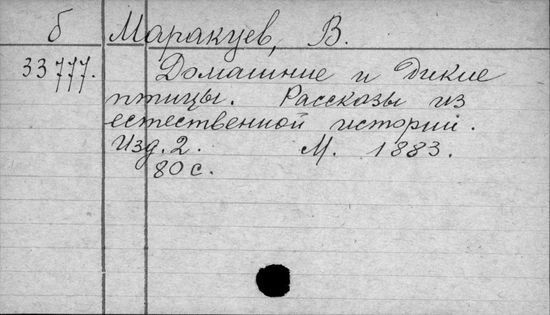 б Маракуев, В.
33777. Домашние и дикие
птицы. Рассказы из
естественной истории.
Изд. 2. М. 1883.
80 с.